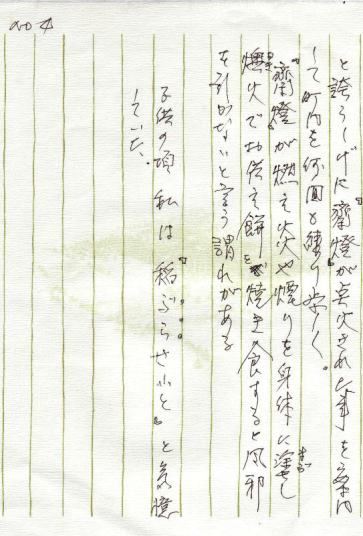 no 4
と誇らしげに『齋燈』が点火された事を案内
して町内を何回も練り歩く。
『齋燈』が燃え火や煙りを身体に塗し
燠火でお供え餅を焼き食すると風邪
を引かないと言う謂れがある
子供の頃 私は『稲ぶらさいと』と記憶
していた。